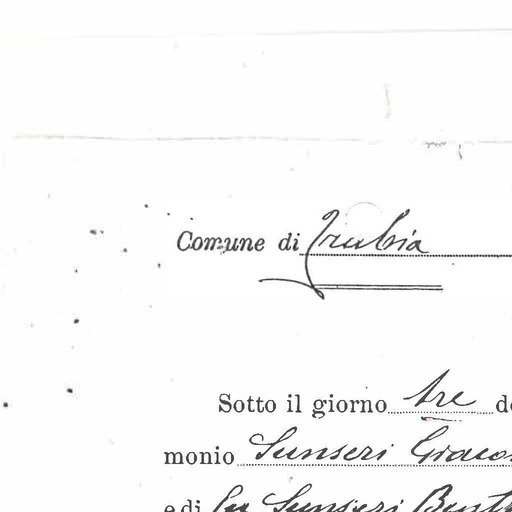 Comune di Trabia
Sotto il giorno tre d
monio Sunseri Giaco
e di fu Sunseri